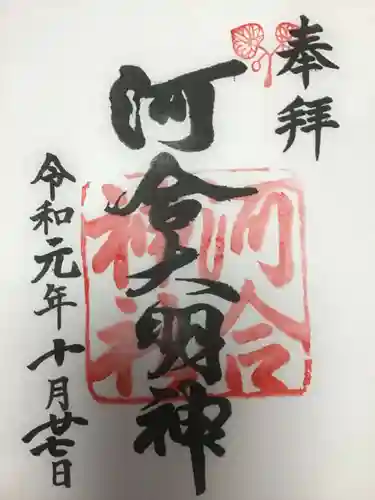 奉拝
河合大明神
河合
神社
令和元年十月廿七日